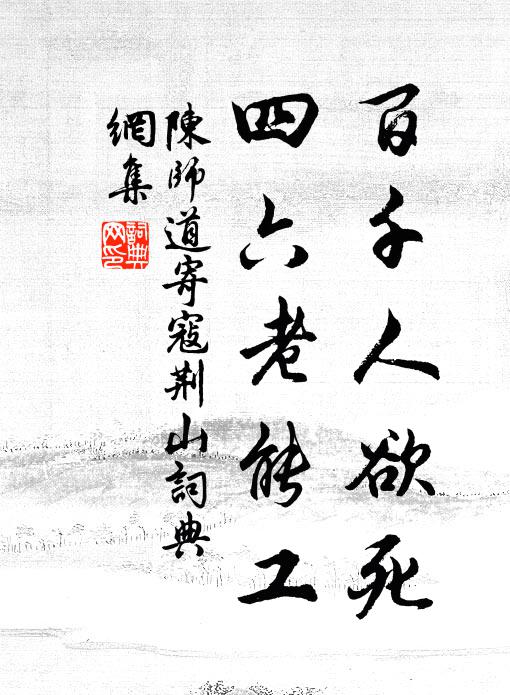 百千人欲死
四六老能工
陳師道寄寇荆山詞典
網集
詞典網印